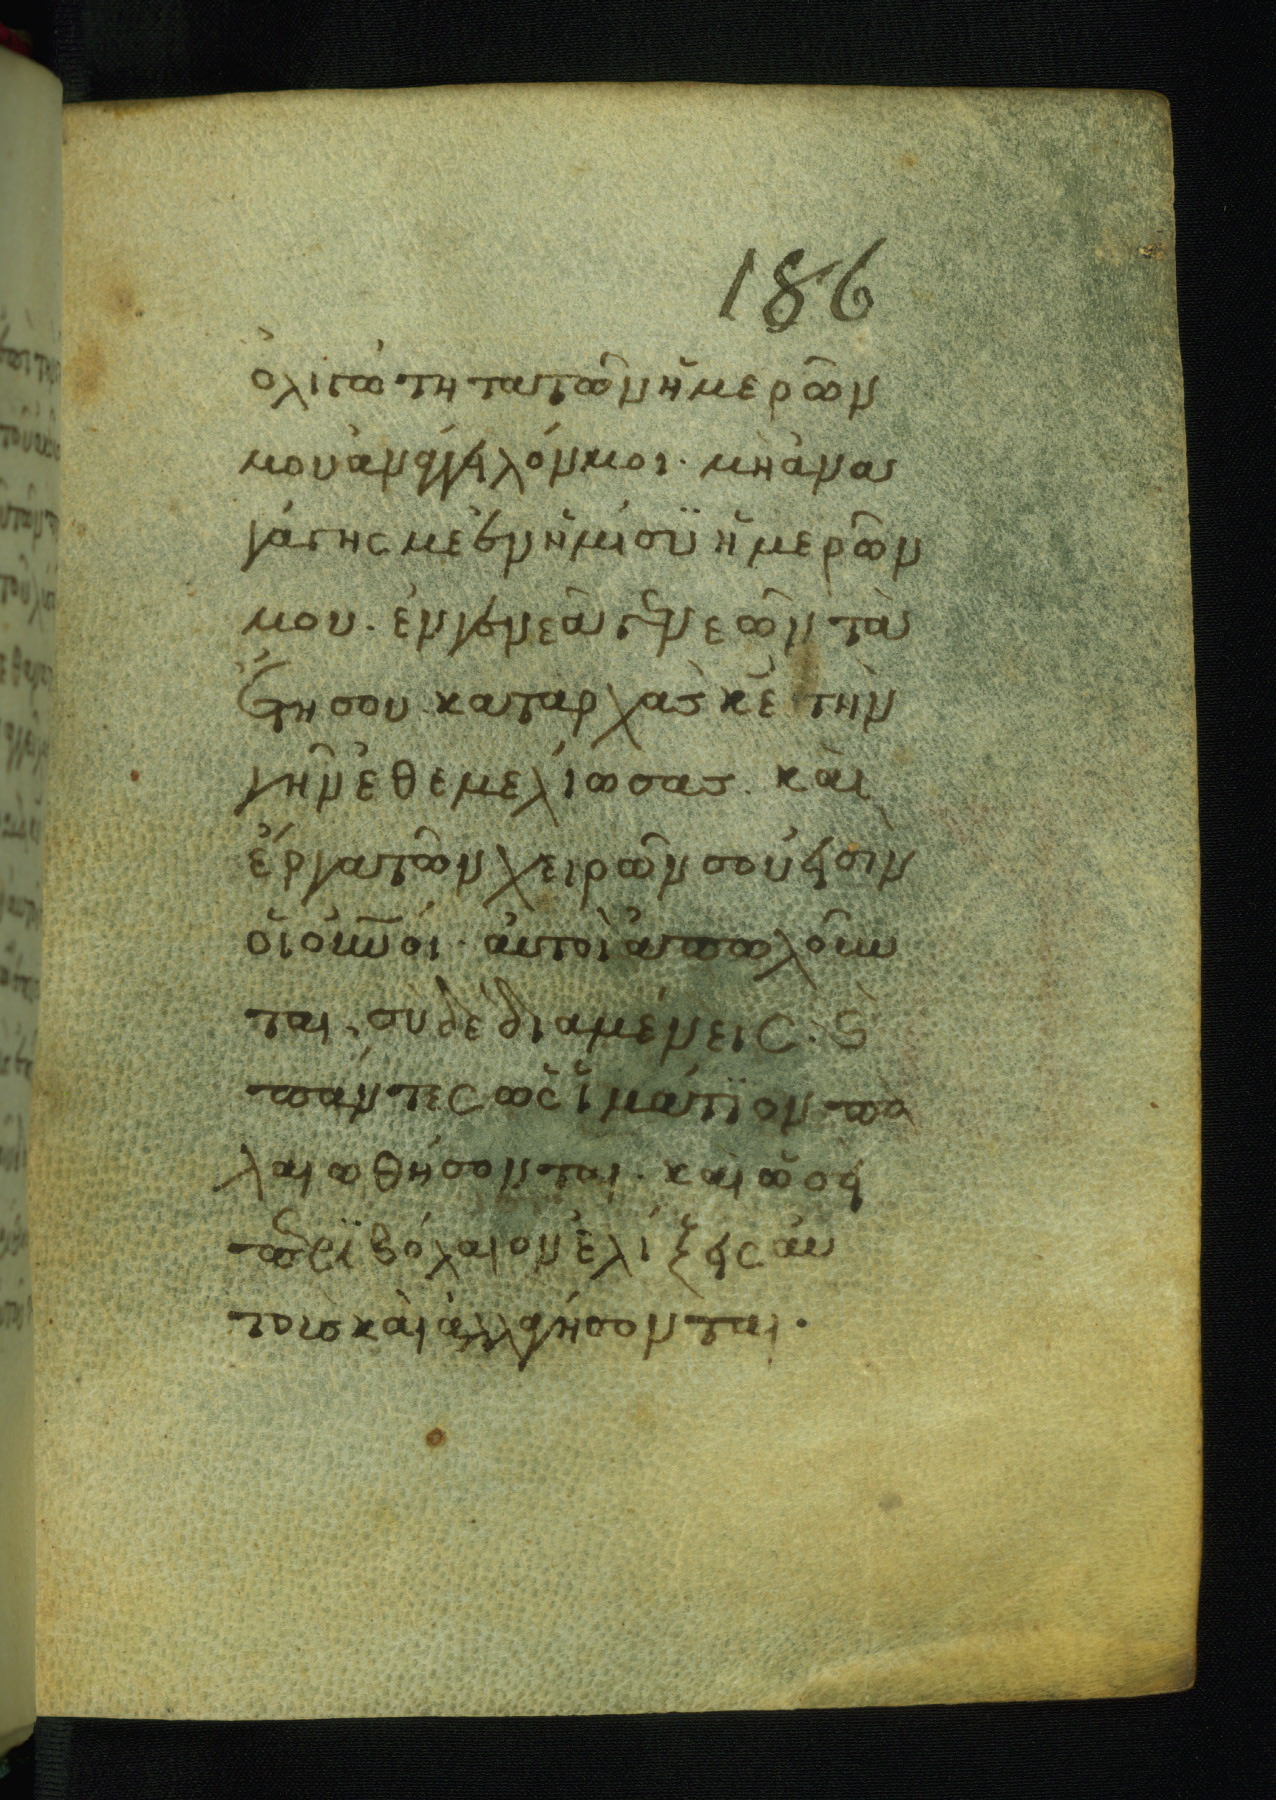 186
ὀλιγώτητα τῶν ἡμερῶν
μου ἀνάγγειλόν μοι· μὴ ἀναγ
γάγης με ἐν ἡμίσϋ ἡμερῶν
μου. ἐν γενεᾷ γενεῶν τὰ
ἔτη σου. καταρχὰς κ̅ε̅ τὴν
γῆν ἐθεμελίωσας. καὶ
ἔργα τῶν χειρῶν σού εἰσιν
οἱ οὐ̅ν̅οί· αὐτοὶ ἀπολοῦν
ται, σὺ δὲ διαμένεις. ϗ
πάντες ὡς ἱμάτϊον πα
λαιωθήσονται. καὶ ὡσεὶ
περϊβόλαιον ἑλίξεις αὐ
τοὺς καὶ ἀλλαγήσονται.